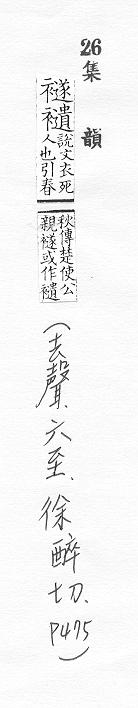 26集 韻
襚䙡說文衣死人也引春
秋傳楚使公親襚或作䙡
(去聲、六至、徐醉切、P475)